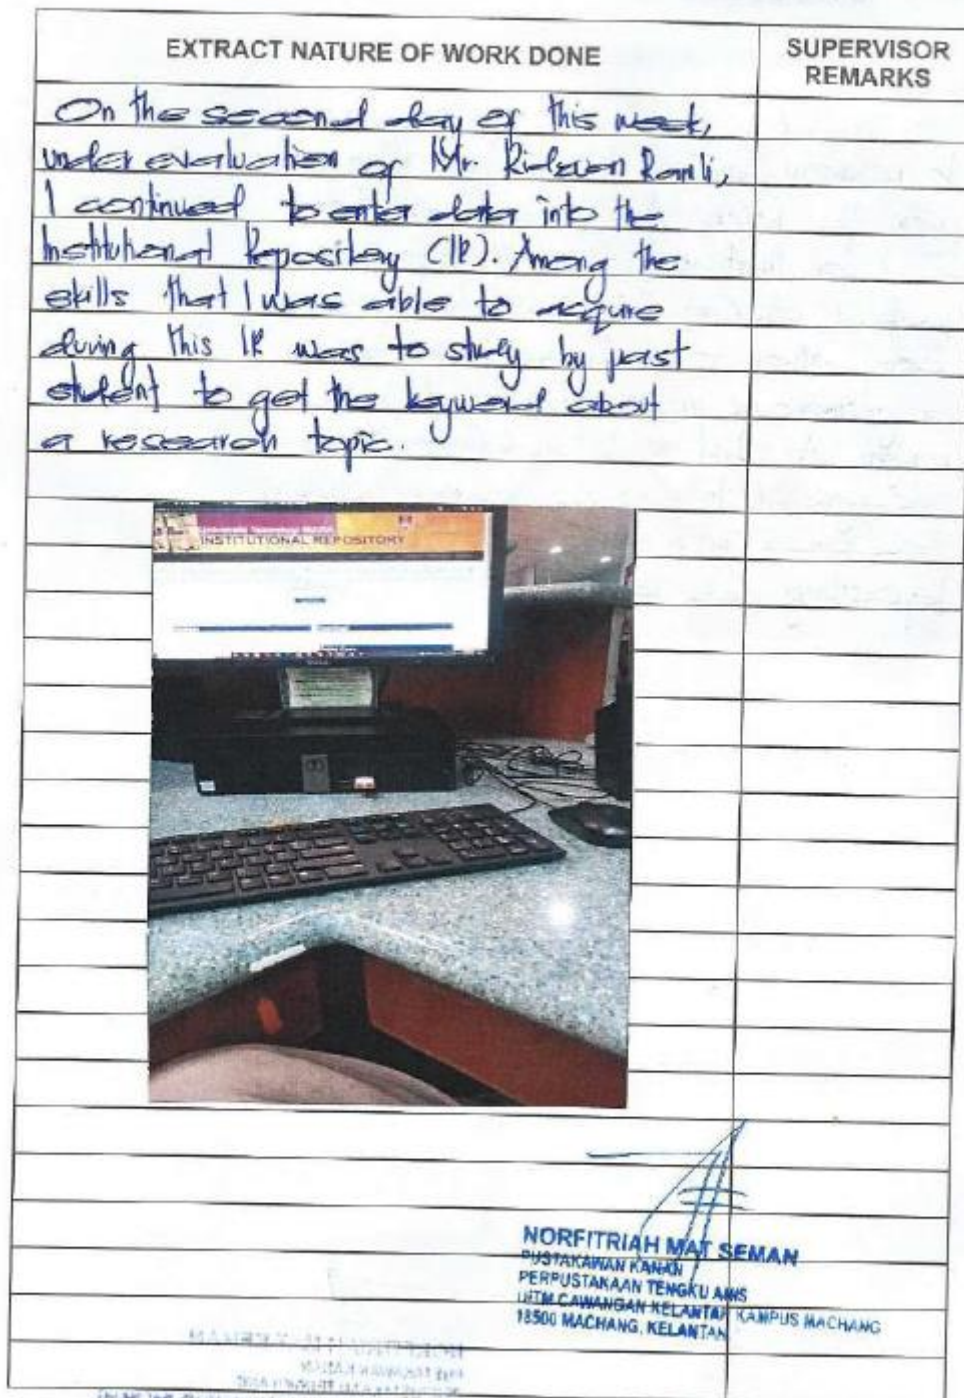 EXTRACT NATURE OF WORK DONE
SUPERVISOR
REMARKS
On the second day of this week,
under evaluation of Mr. Ridzwan Ramli,
I continued to enter data into the
Institutional Repository (IR). Among the
skills that I was able to acqure
during this IR was to study by past
student to get the keyword about
a research topic.
Universiti Teknologi MARA
INSTITUTIONAL REPOSITORY
NORFITRIAH MAT SEMAN
PUSTAKAWAN KANAN
PERPUSTAKAAN TENGKU ANIS
UITM CAWANGAN KELANTAN KAMPUS MACHANG
18500 MACHANG, KELANTAN